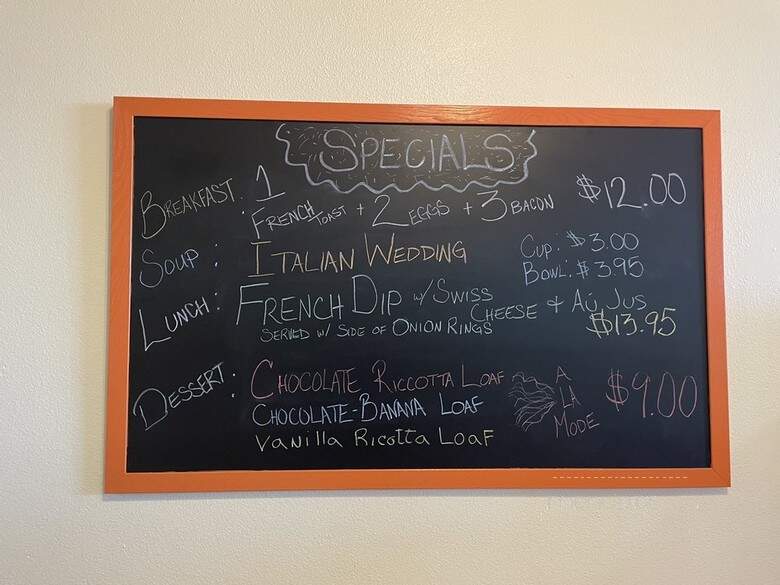 SPECIALS
BREAKFAST: 1 FRENCH TOAST + 2 EGGS + 3 BACON $12.00
SOUP: ITALIAN WEDDING Cup: $3.00
BOWL: $3.95
LUNCH: FRENCH DIP w/ SWISS CHEESE + AÚ JUS
SERVED w/ SIDE OF ONION RINGS $13.95
DESSERT: CHOCOLATE RICCOTTA LOAF A LA MODE $9.00
CHOCOLATE-BANANA LOAF
VANILLA RICOTTA LOAF